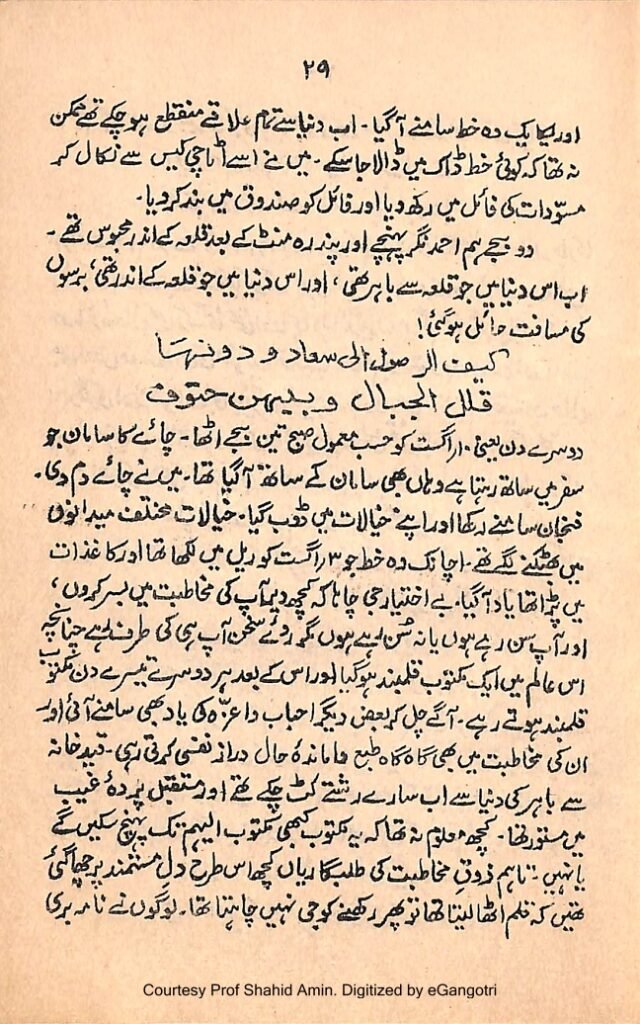 ۲۹
اور یکایک وہ خط سامنے آ گیا۔ اب دنیا سے تمام علاقے منقطع ہو چکے تھے ممکن
نہ تھا کہ کوئی خط ڈاک میں ڈالا جا سکے۔ میں نے اسے اٹاچی کیس سے نکال کر
مسوّدات کی فائل میں رکھ دیا اور فائل کو صندوق میں بند کر دیا۔
دو بجے ہم احمد نگر پہنچے اور پندرہ منٹ کے بعد قلعہ کے اندر محبوس تھے۔
اب اس دنیا میں جو قلعہ سے باہر تھی، اور اس دنیا میں جو قلعہ کے اندر تھی، برسوں
کی مسافت حائل ہو گئی!
کیف الوصول الی سعاد و دونہا
قلل الجبال و بینہن حتوف
دوسرے دن یعنی ۱۰ اگست کو حسب معمول صبح تین بجے اٹھا۔ چائے کا سامان جو
سفر میں ساتھ رہتا ہے وہاں بھی سامان کے ساتھ آ گیا تھا۔ میں نے چائے دم دی۔
فنجان سامنے رکھا اور اپنے خیالات میں ڈوب گیا۔ خیالات مختلف میدانوں
میں بھٹکنے لگے تھے۔ اچانک وہ خط جو ۳ اگست کو ریل میں لکھا تھا اور کاغذات
میں پڑا تھا یاد آ گیا۔ بے اختیار جی چاہا کہ کچھ دیر آپ کی مخاطبت میں بسر کروں،
اور آپ سن رہے ہوں یا نہ سُن رہے ہوں مگر روئے سخن آپ ہی کی طرف رہے چنانچہ
اس عالم میں ایک مکتوب قلمبند ہو گیا اور اس کے بعد ہر دوسرے تیسرے دن مکتوب
قلمبند ہوتے رہے۔ آگے چل کر بعض دیگر احباب و اعزّہ کی یاد بھی سامنے آئی اور
ان کی مخاطبت میں بھی گاہ گاہ طبع واماندۂ حال دراز نفسی کرتی رہی۔ قید خانہ
سے باہر کی دنیا سے اب سارے رشتے کٹ چکے تھے اور مستقبل پردۂ غیب
میں مستور تھا۔ کچھ معلوم نہ تھا کہ یہ مکتوب کبھی مکتوب الیہم تک پہنچ سکیں گے
یا نہیں۔ تاہم ذوقِ مخاطبت کی طلبگاریاں کچھ اس طرح دلِ مستمند پر چھا گئی
تھیں کہ قلم اٹھا لیتا تھا تو پھر رکھنے کو جی نہیں چاہتا تھا۔ لوگوں نے نامہ بری
Courtesy Prof Shahid Amin. Digitized by eGangotri